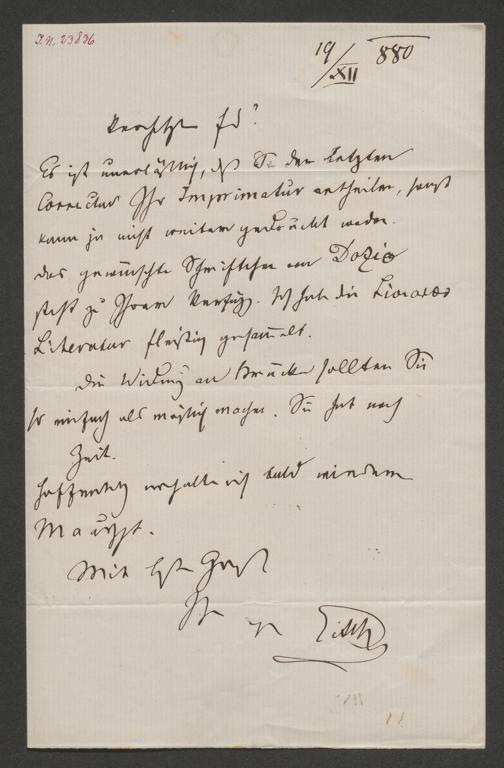 I.N. 23836
19/XII 880
Es ist unerläßlich, daß Sie der letzten
Correctur Ihr Imprimatur ertheilen, sonst
kann ja nicht weiter gedruckt werden.
Das gewünschte Schriftchen von Dozio
steht zu Ihrer Verfügg. Ich habe die Lionardo
Literatur fleißig gesammelt.
Die Widmung an Brücke sollten Sie
so einfach als möglich machen. Sie hat noch
Zeit.
Hoffentlich erhalte ich bald wieder
Manuscpt.
Mit Gruß
Ihr